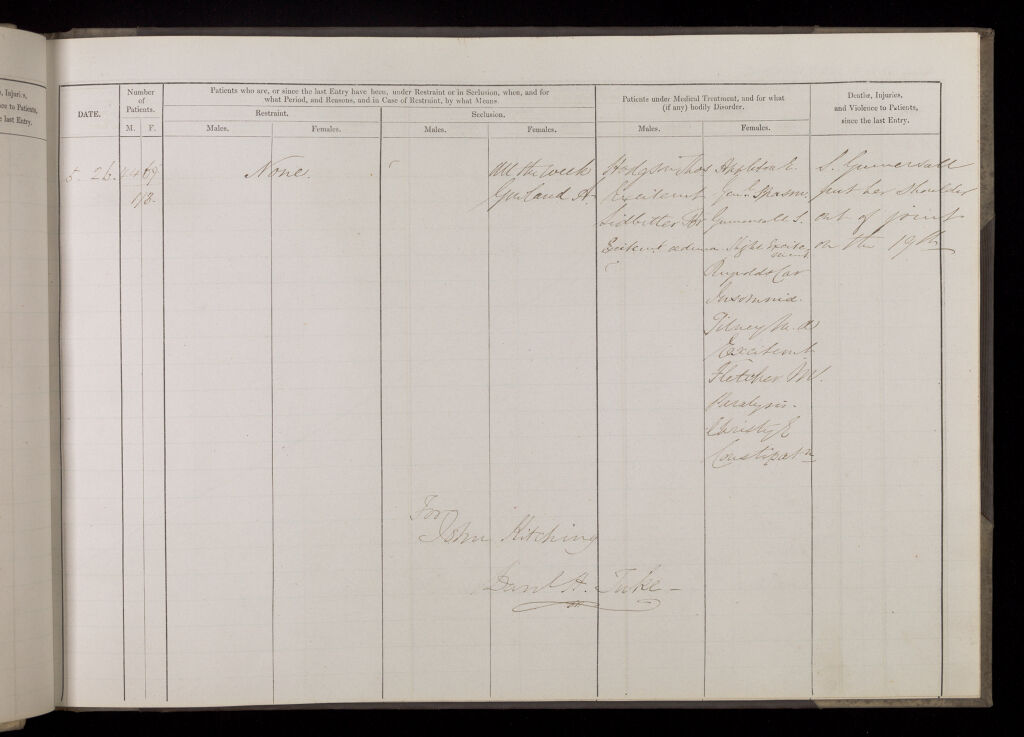 e, Injuries,
nce to Patients,
e last Entry.
DATE.
Number
of
Patients.
M. F.
Patients who are, or since the last Entry have been, under Restraint or in Seclusion, when, and for
what Period, and Reasons, and in Case of Restraint, by what Means
Restraint.
Seclusion.
Males. Females. Males. Females.
Patients under Medical Treatment, and for what
(if any) bodily Disorder.
Males. Females.
Deaths, Injuries,
and Violence to Patients,
since the last Entry.
5. 26.
None.
All the week
Hodgson Thos
Excitement
Excitemt
Appleton E.
Genl. Spasm.
Gummersall S.
Slight Excite
ment
Reynolds Car
Insomnia.
Tilney M. A.
Excitemt
Fletcher M.
Paralysis.
Christy E
Constipatn
S. Gummersall
put her shoulder
out of joint
on the 19th
For
John Kitching
Danl H. Tuke